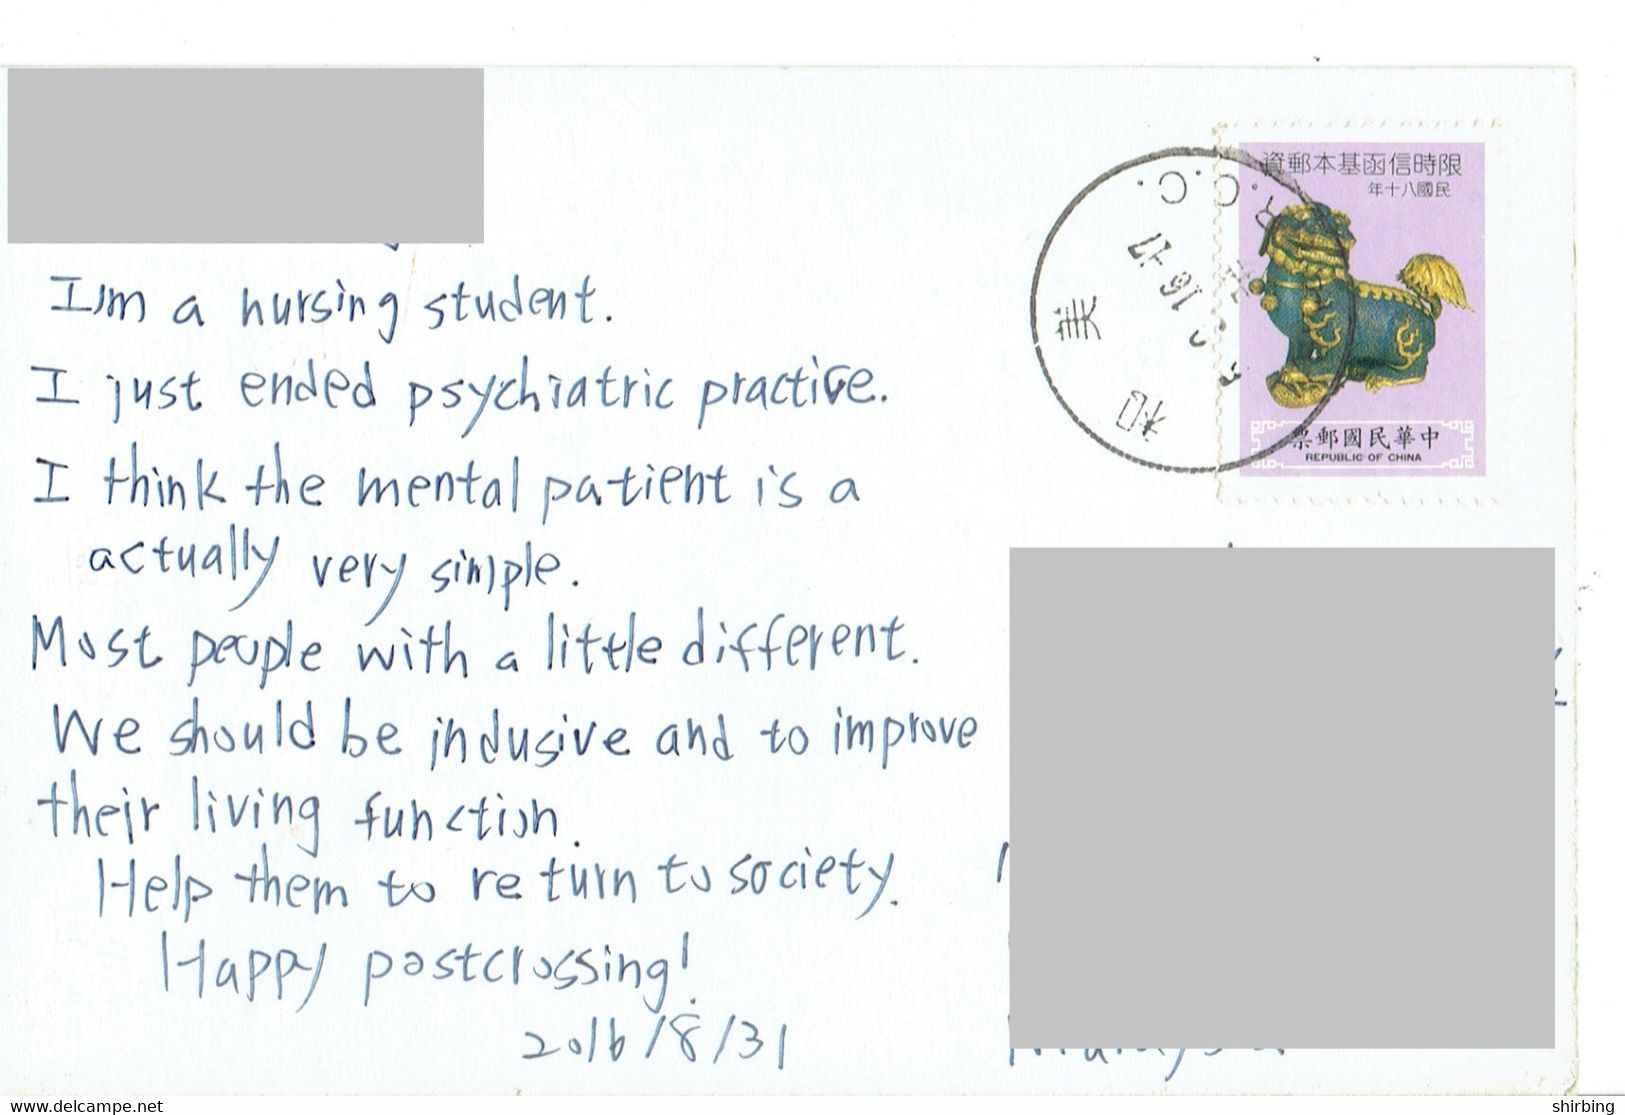 I'm a nursing student.
I just ended psychiatric practice.
I think the mental patient is a
actually very simple.
Most people with a little different.
We should be inclusive and to improve
their living function.
Help them to return to society.
Happy postcrossing!
2016/8/31
限時信函基本郵資
民國八十年
中華民國郵票
REPUBLIC OF CHINA
和美
C.C.
16-17
www.delcampe.net
shirbing